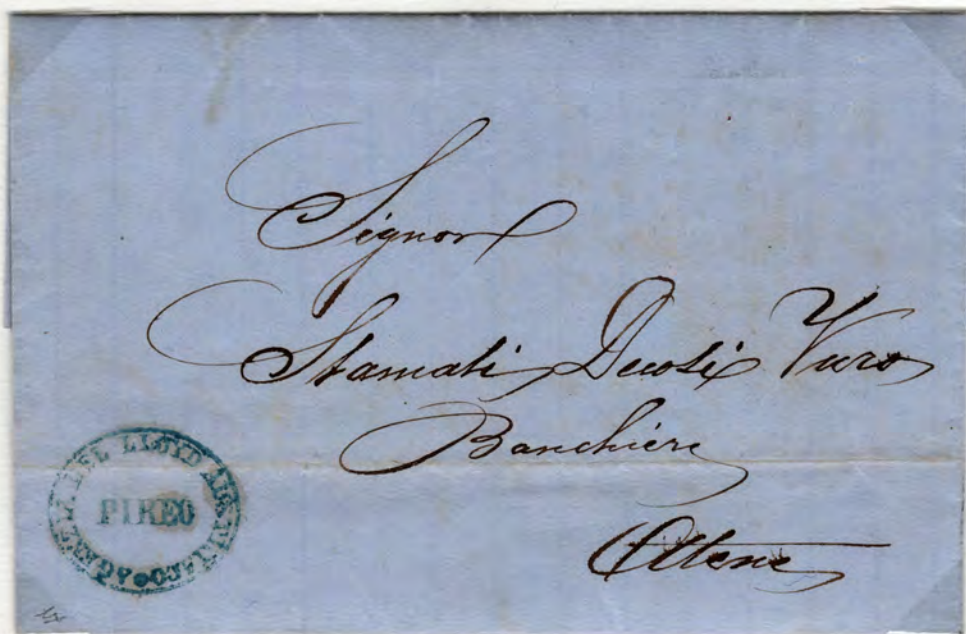 Signor
Stamati Decosi Vuro
Banchiere
Atene
AGENZIA DEL LLOYD AUSTRIACO
PIREO